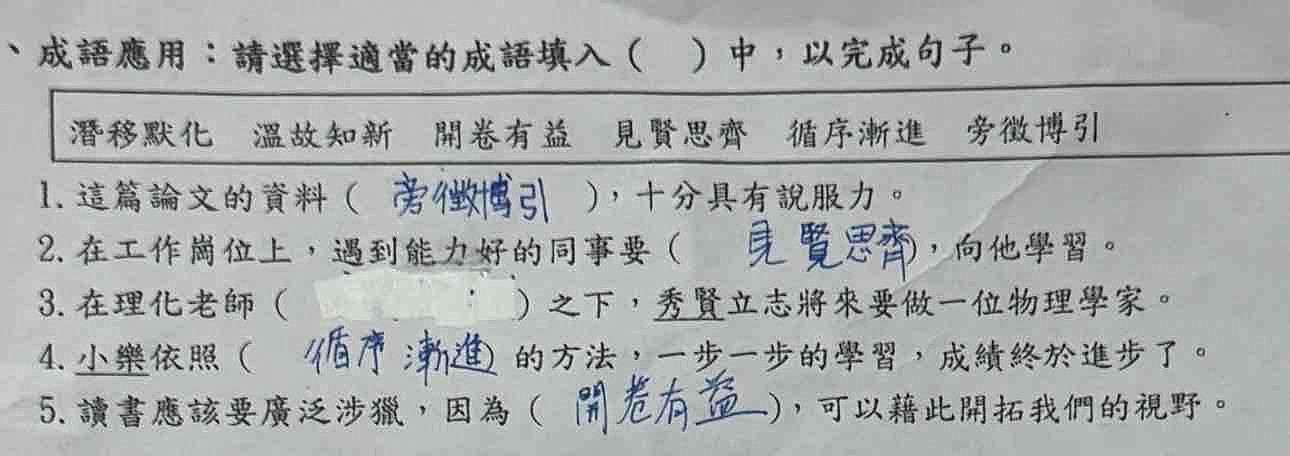 、成語應用：請選擇適當的成語填入（　）中，以完成句子。
潛移默化　溫故知新　開卷有益　見賢思齊　循序漸進　旁徵博引
1. 這篇論文的資料（ 旁徵博引 ），十分具有說服力。
2. 在工作崗位上，遇到能力好的同事要（ 見賢思齊），向他學習。
3. 在理化老師（　　）之下，秀賢立志將來要做一位物理學家。
4. 小樂依照（ 循序漸進）的方法，一步一步的學習，成績終於進步了。
5. 讀書應該要廣泛涉獵，因為（ 開卷有益），可以藉此開拓我們的視野。